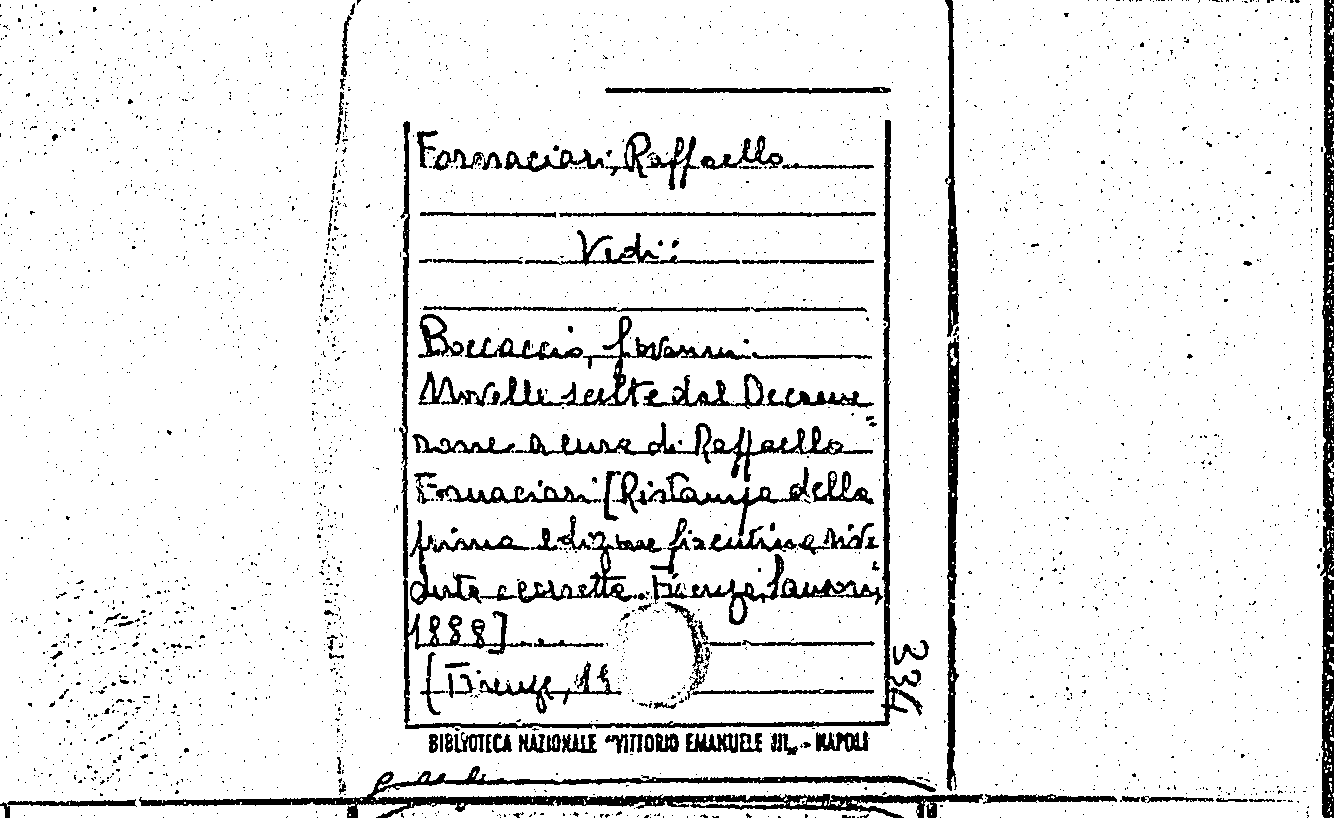 Fornaciari, Raffaello.
Vedi:
Boccaccio, Giovanni.
Novelle scelte dal Decame=
rone a cura di Raffaello
Fornaciari [Ristampa della
prima edizione fiorentina rive=
duta e corretta. Firenze, Sansoni,
1888] ...
(Firenze, 19
334
BIBLIOTECA NAZIONALE "VITTORIO EMANUELE III„ - NAPOLI